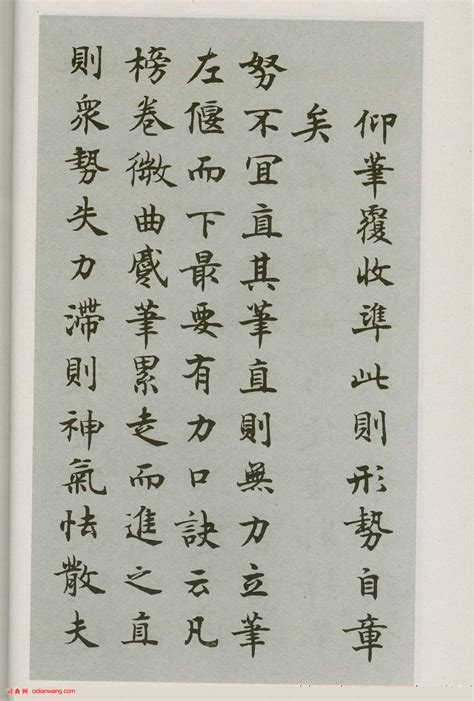 仰筆覆收準此則形勢自章
矣
努不宜直其筆直則無力立筆
左偃而下最要有力口訣云凡
榜卷微曲蹙筆累走而進之直
則眾勢失力滯則神氣怯散夫
词典网 cidianwang.com